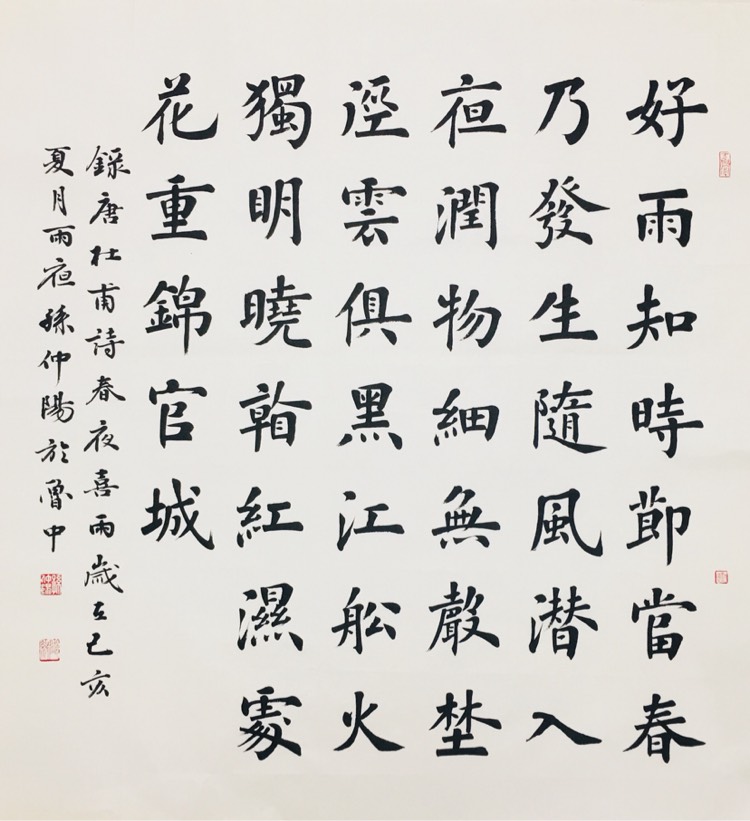 好雨知時節當春
乃發生隨風潛入
夜潤物細無聲埜
徑雲俱黑江船火
獨明曉看紅濕處
花重錦官城
錄唐杜甫詩春夜喜雨歲在己亥
夏月雨夜孫仲陽於魯中